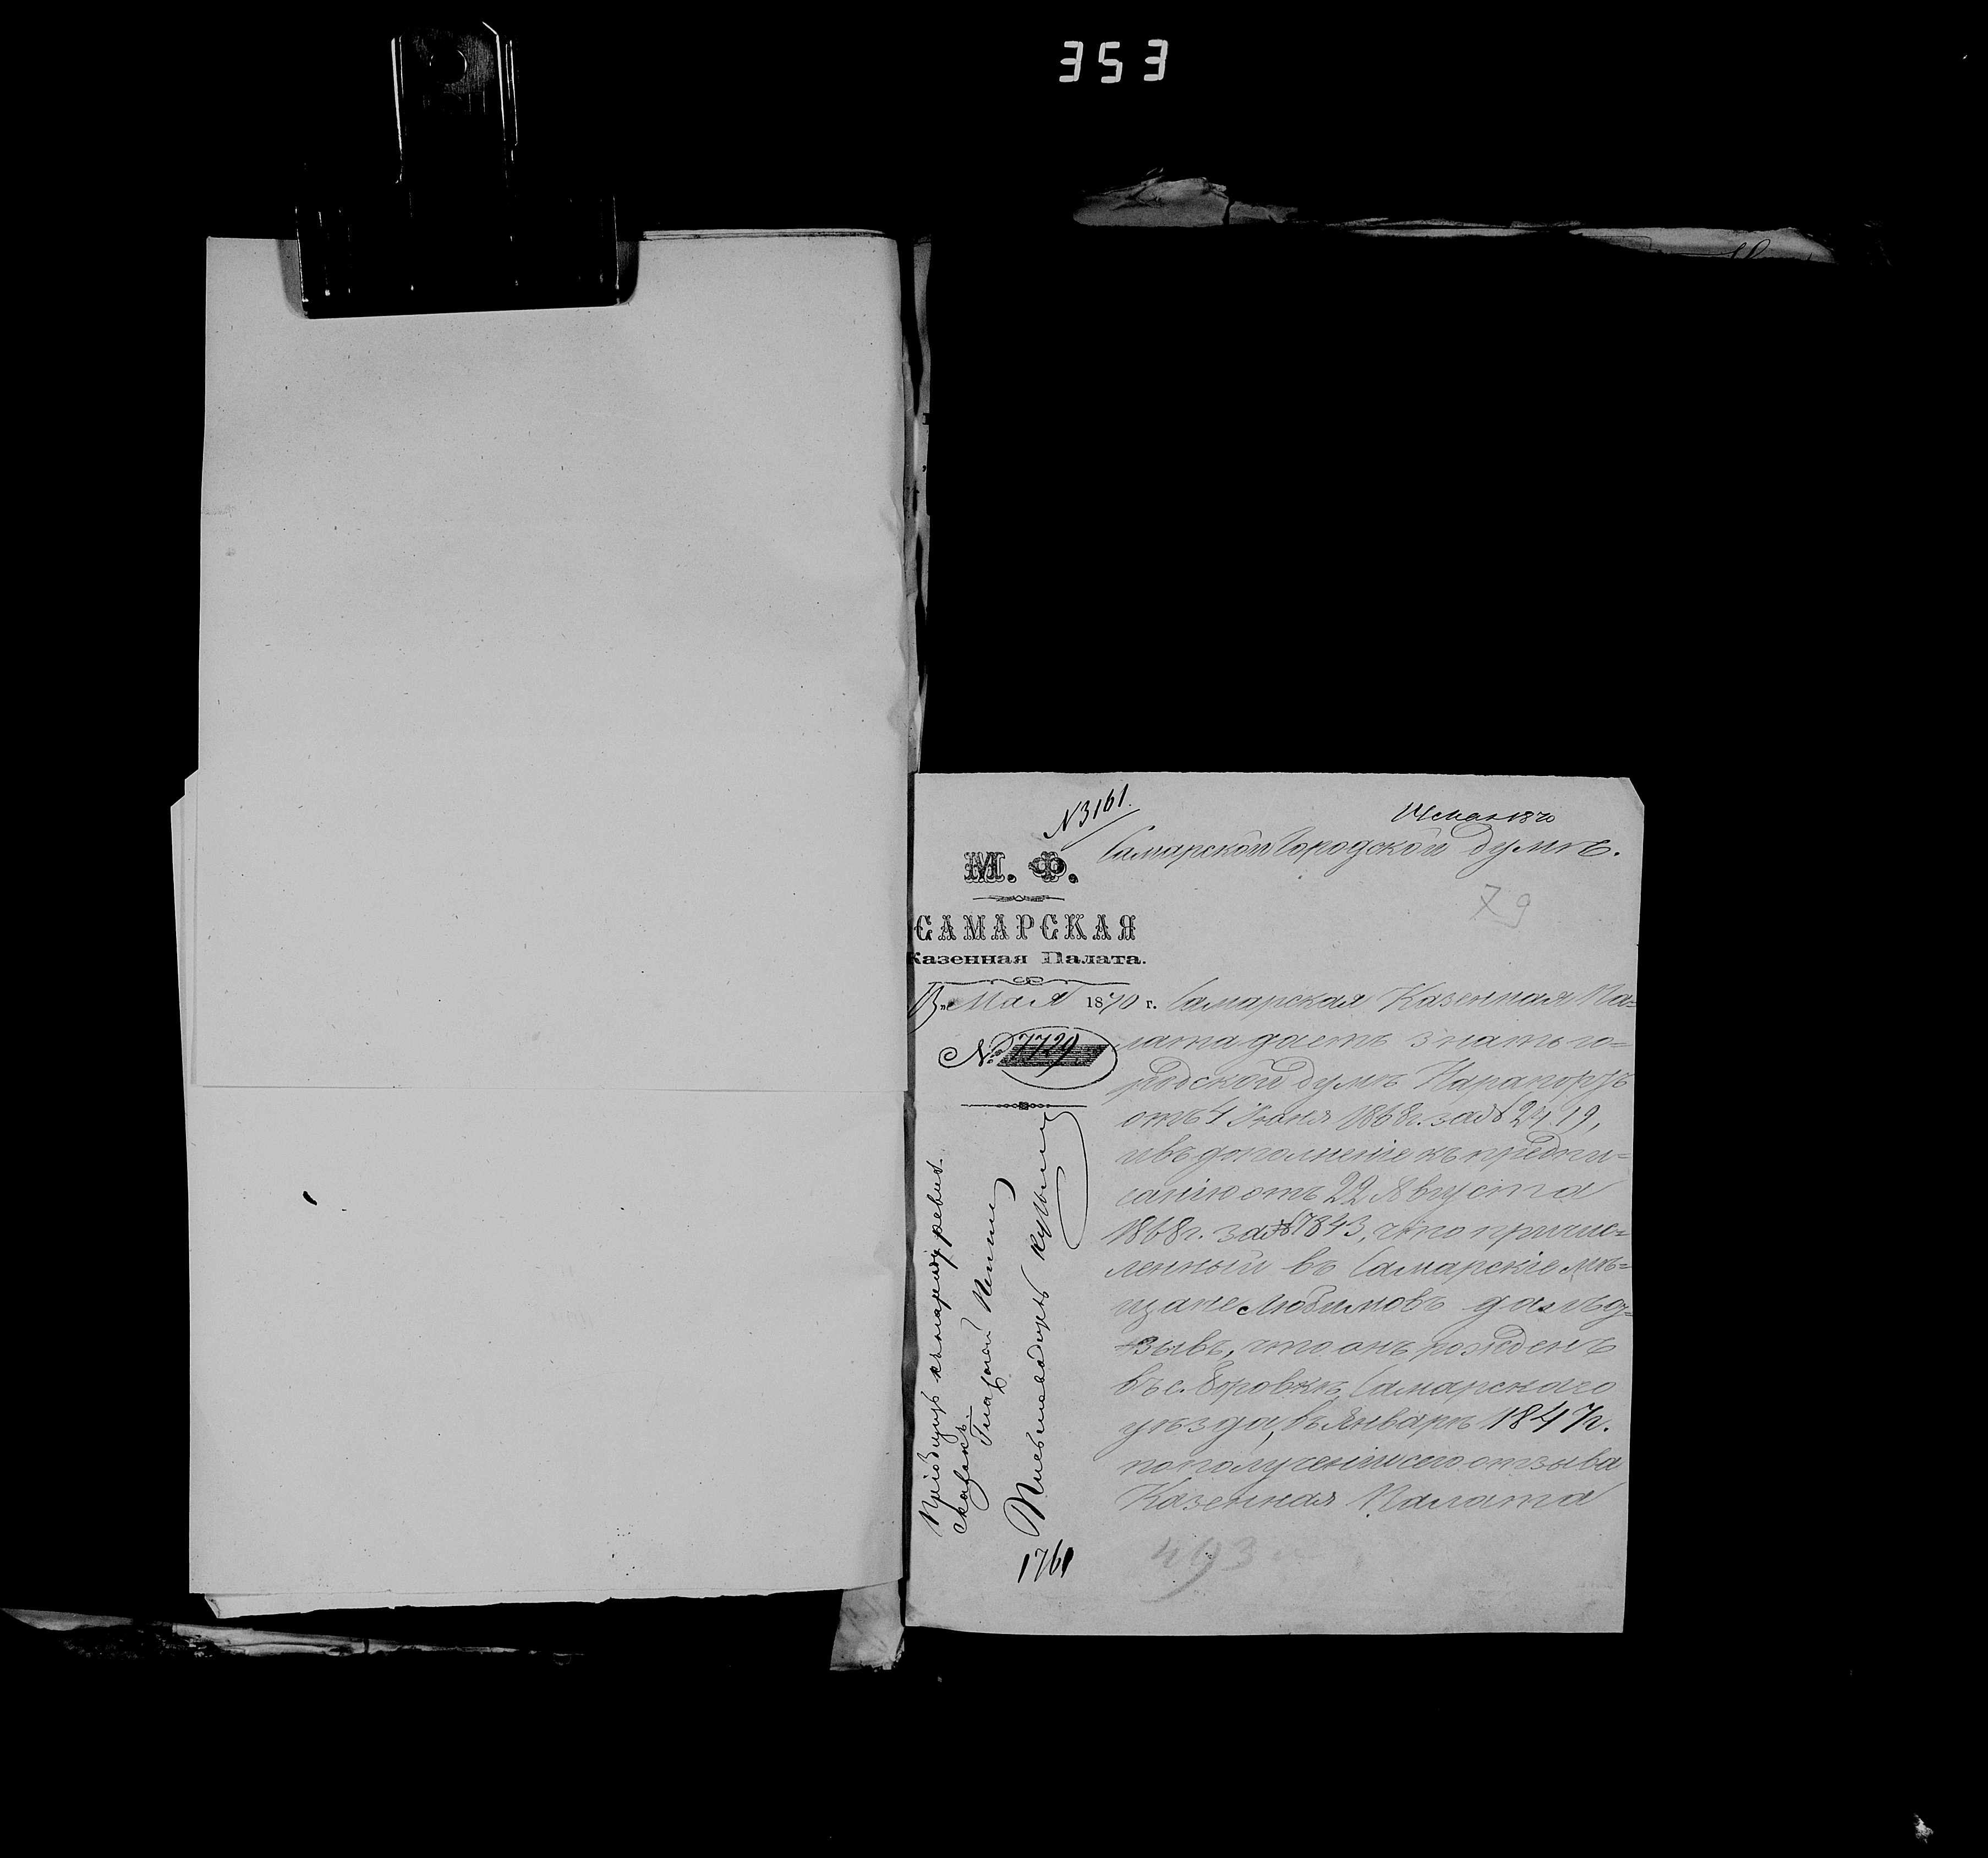 353
N 3161.
14 Мая 1870
Самарской Городской Думѣ.
79
М. Ф.
САМАРСКАЯ
Казенная Палата.
13 " Мая 1870 г.
№ 7729
Самарская Казенная Па=
лата даетъ знать го=
родской Думѣ На рапортъ
отъ 4 Іюня 1868 г. за № 2419,
и въ дополненіе къ предпи=
санію отъ 22 Августа
1868 г. за № 7843, что причис=
ленный въ Самарскіе мѣ=
щане Любимовъ далъ от=
зывъ, что онъ рожденъ
въ с. Боровкѣ, Самарскаго
уѣзда, въ Январѣ 1847 г.
по полученіи сего отзыва
Казенная Палата
493
Пріобщить къ
сказкѣ.
Гласной
Письмоводитель
1761